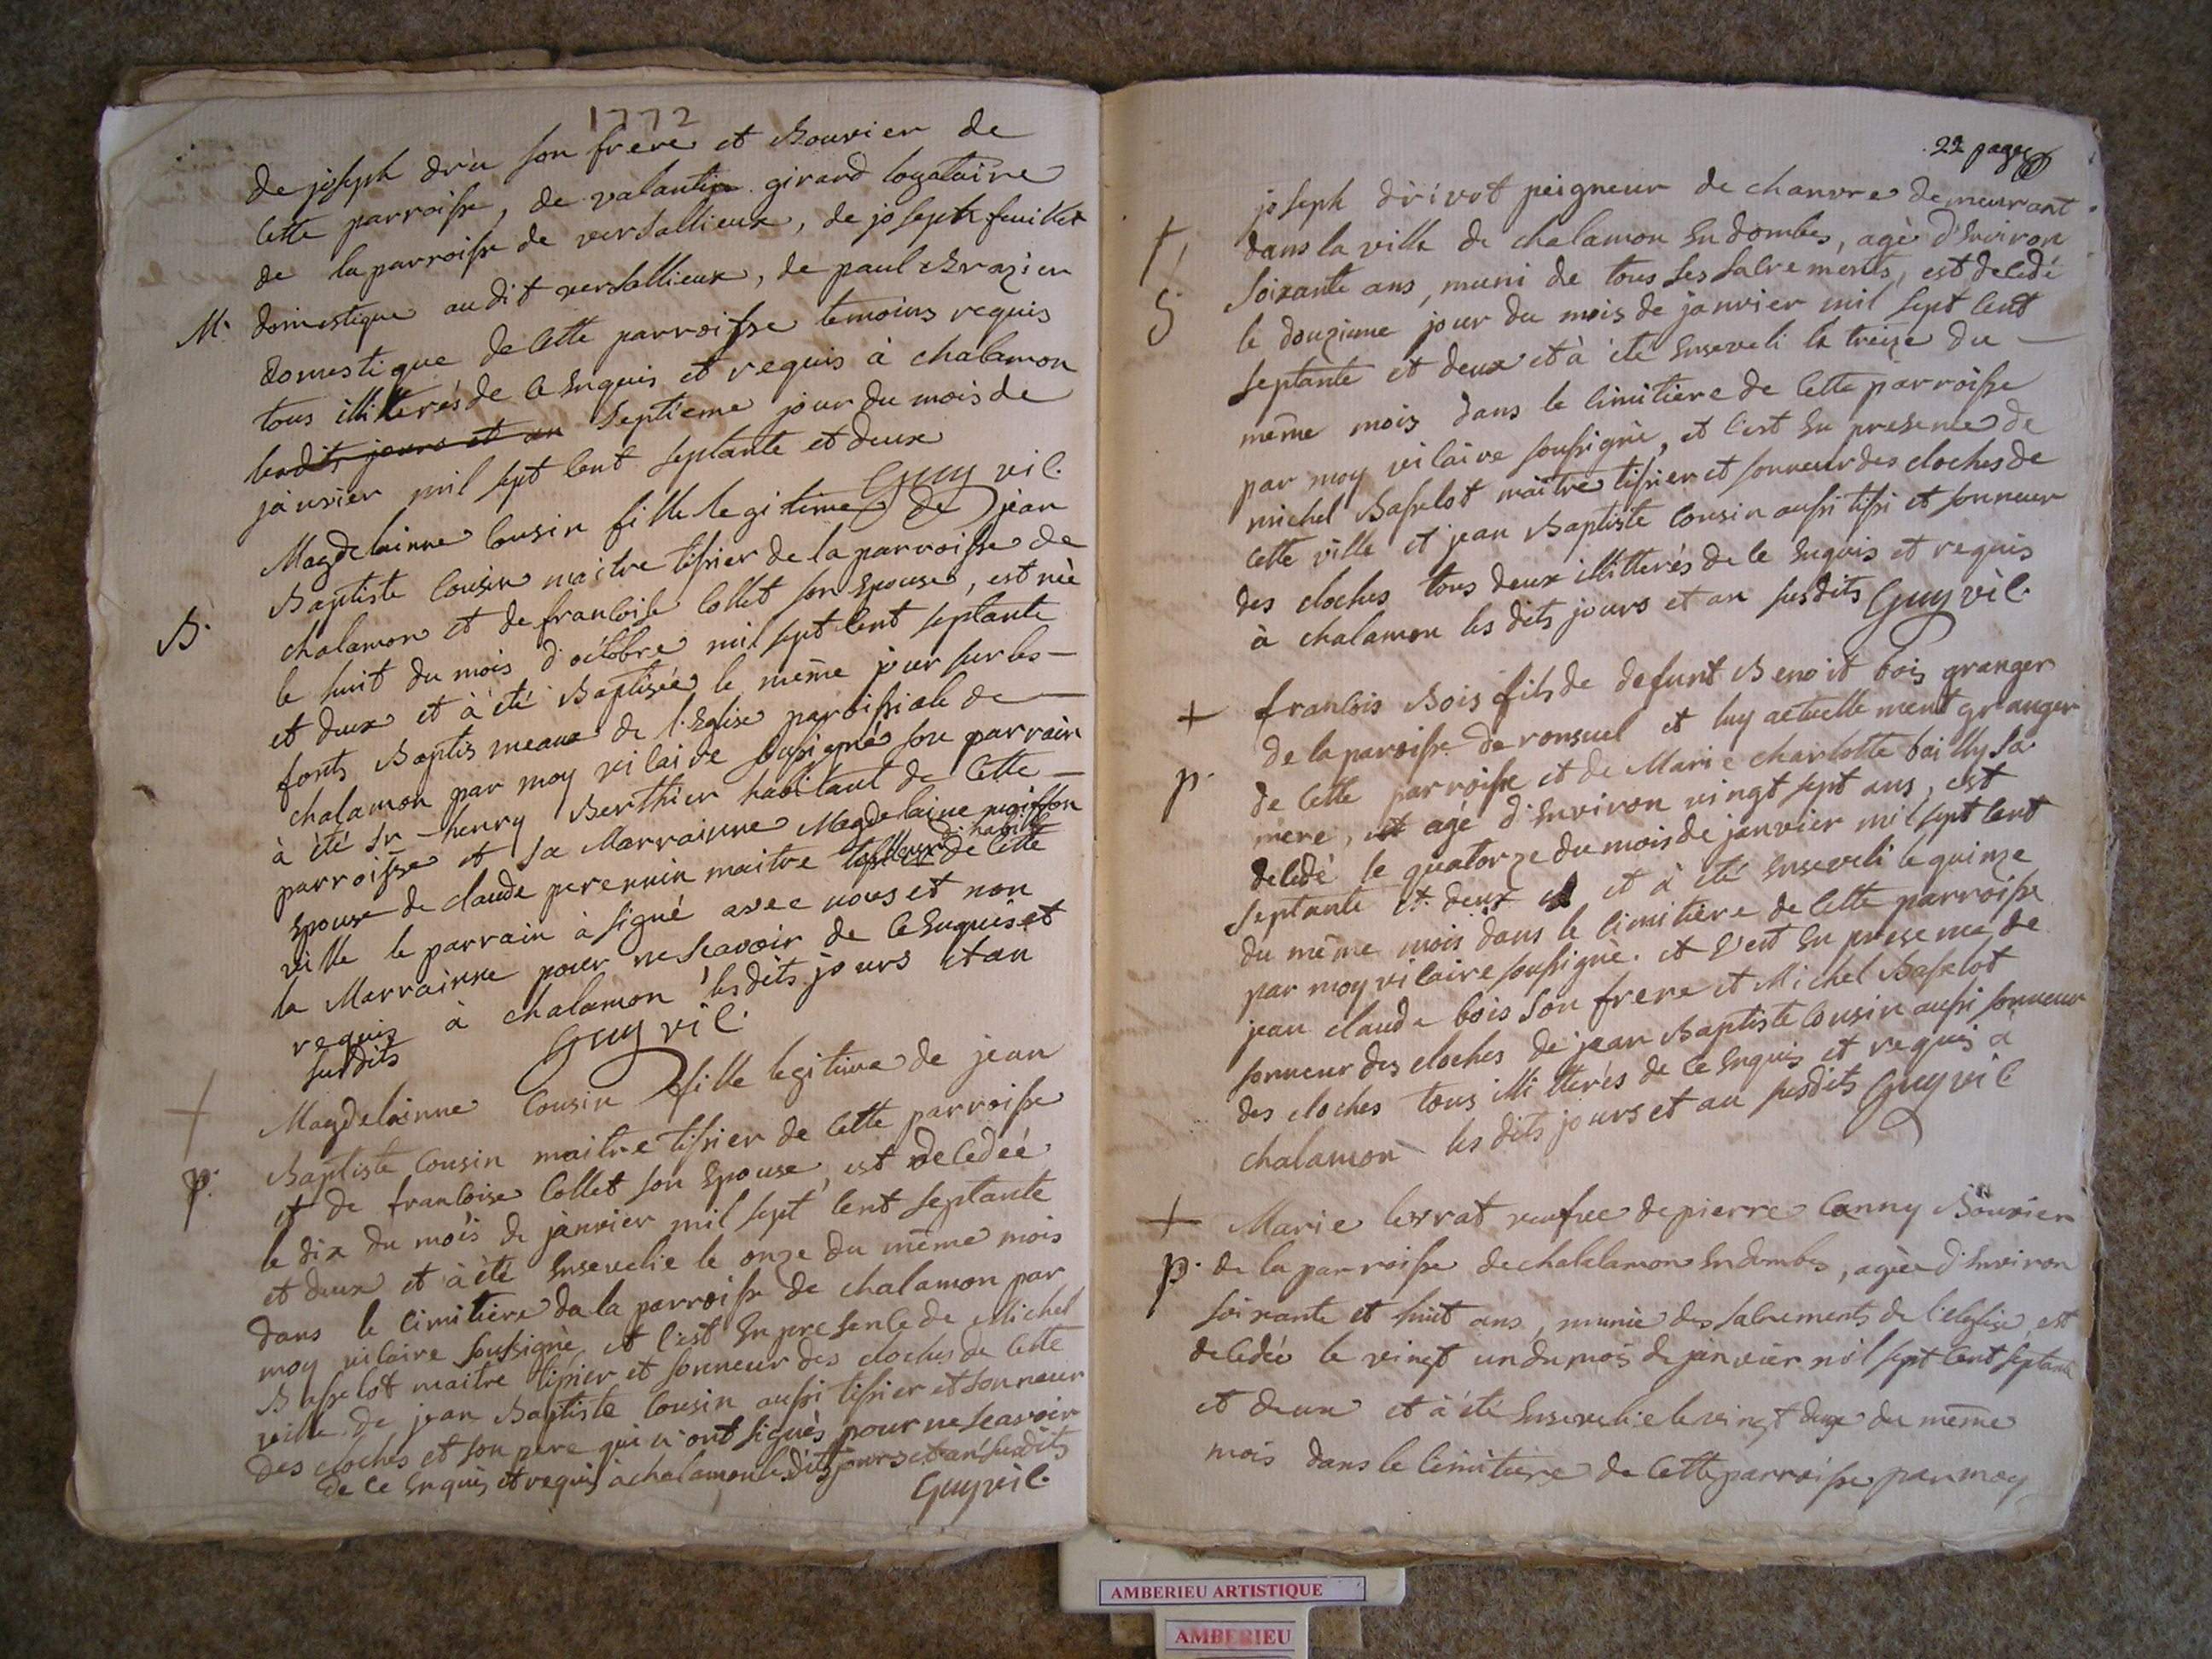 1772
de joseph dru son frere et Bouvier de
cette parroisse, de valantin girard logataire
de la parroisse de versallieux, de joseph feuillet
M. domestique au dit versallieux, de paul Brazier
domestique de cette parroisse temoins requis
tous illiterés de ce enquis et requis à chalamon
lesdits jours et an septieme jour du mois de
janvier mil sept cent septante et deux
Guy vic.
Magdelainne Cousin fille legitime de jean
Baptiste Cousin maitre tissier de la parroisse de
B. chalamon et de francoise Collet son epouse, est née
le huit du mois d'octobre mil sept cent septante
et deux et à été Baptisée le même jour sur les
fonts Baptismeaux de l'Eglise paroissiale de
chalamon par moy vicaire soussigné son parrain
à été sr henry Berthier habitant de cette
parroisse et sa Marrainne Magdelaine
epouse de claude perennin maitre tailleur d'habits de cette
ville le parrain à signé avec nous et non
la Marrainne pour ne scavoir de ce enquis et
requis à chalamon les dits jours et an
susdits Guy vic.
+ Magdelainne Cousin fille legitime de jean
Baptiste Cousin maitre tissier de cette parroisse
p. et de francoise Collet son epouse, est decedeé
le dix du mois de janvier mil sept cent septante
et deux et à été ensevelie le onze du même mois
dans le cimitiere da la parroisse de chalamon par
moy vicaire soussigné, et c'est en presence de Michel
Basselot maitre tissier et sonneur des cloches de cette
ville de jean Baptiste Cousin aussi tissier et sonneur
des cloches et son pere qui n'ont signès pour ne scavoir
de ce enquis et requis à chalamon les dits jours et an susdits
Guy vic.
22 page
joseph drivot peigneur de chanvre demeurant
+ dans la ville de chalamon en dombes, agè d'environ
soixante ans, muni de tous ses sacrements, est decedé
G le douzieme jour du mois de janvier mil sept cent
septante et deux et à été enseveli le treize du
même mois dans le cimitiere de cette parroisse
par moy vicaire soussigné, et c'est en presence de
michel Basselot maitre tissier et sonneur des cloches de
cette ville et jean Baptiste Cousin aussi tissi et sonneur
des cloches tous deux illitterés de ce enquis et requis
à chalamon les dits jours et an susdits Guy vic.
+ francois Bois fils de defunt Benoit bois granger
de la paroisse de ronsuel et luy actuellement granger
p. de cette parroisse et de Marie charlotte bailly sa
mere, et agé d'environ vingt sept ans, est
decedé le quatorze du mois de janvier mil sept cent
septante et deux et à été enseveli le quinze
du même mois dans le cimitiere de cette parroisse
par moy vicaire soussigné. et c'est en presence de
jean claude bois son frere et Michel Basselot
sonneur des cloches de jean Baptiste Cousin aussi sonneur
des cloches tous illitterés de ce enquis et requis à
chalamon les dits jours et an susdits Guy vic
+ Marie verrat veufve de pierre Canny Bouvier
p. de la parroisse de chalalamon en dombes, agèe d'environ
soixante et huit ans, munie des sacrements de l'eglise, est
decedée le vingt un du mois de janvier mil sept cent septante
et deux et à été ensevelie le vingt deux du même
mois dans le cimitiere de cette parroisse par moy
AMBERIEU ARTISTIQUE
AMBERIEU